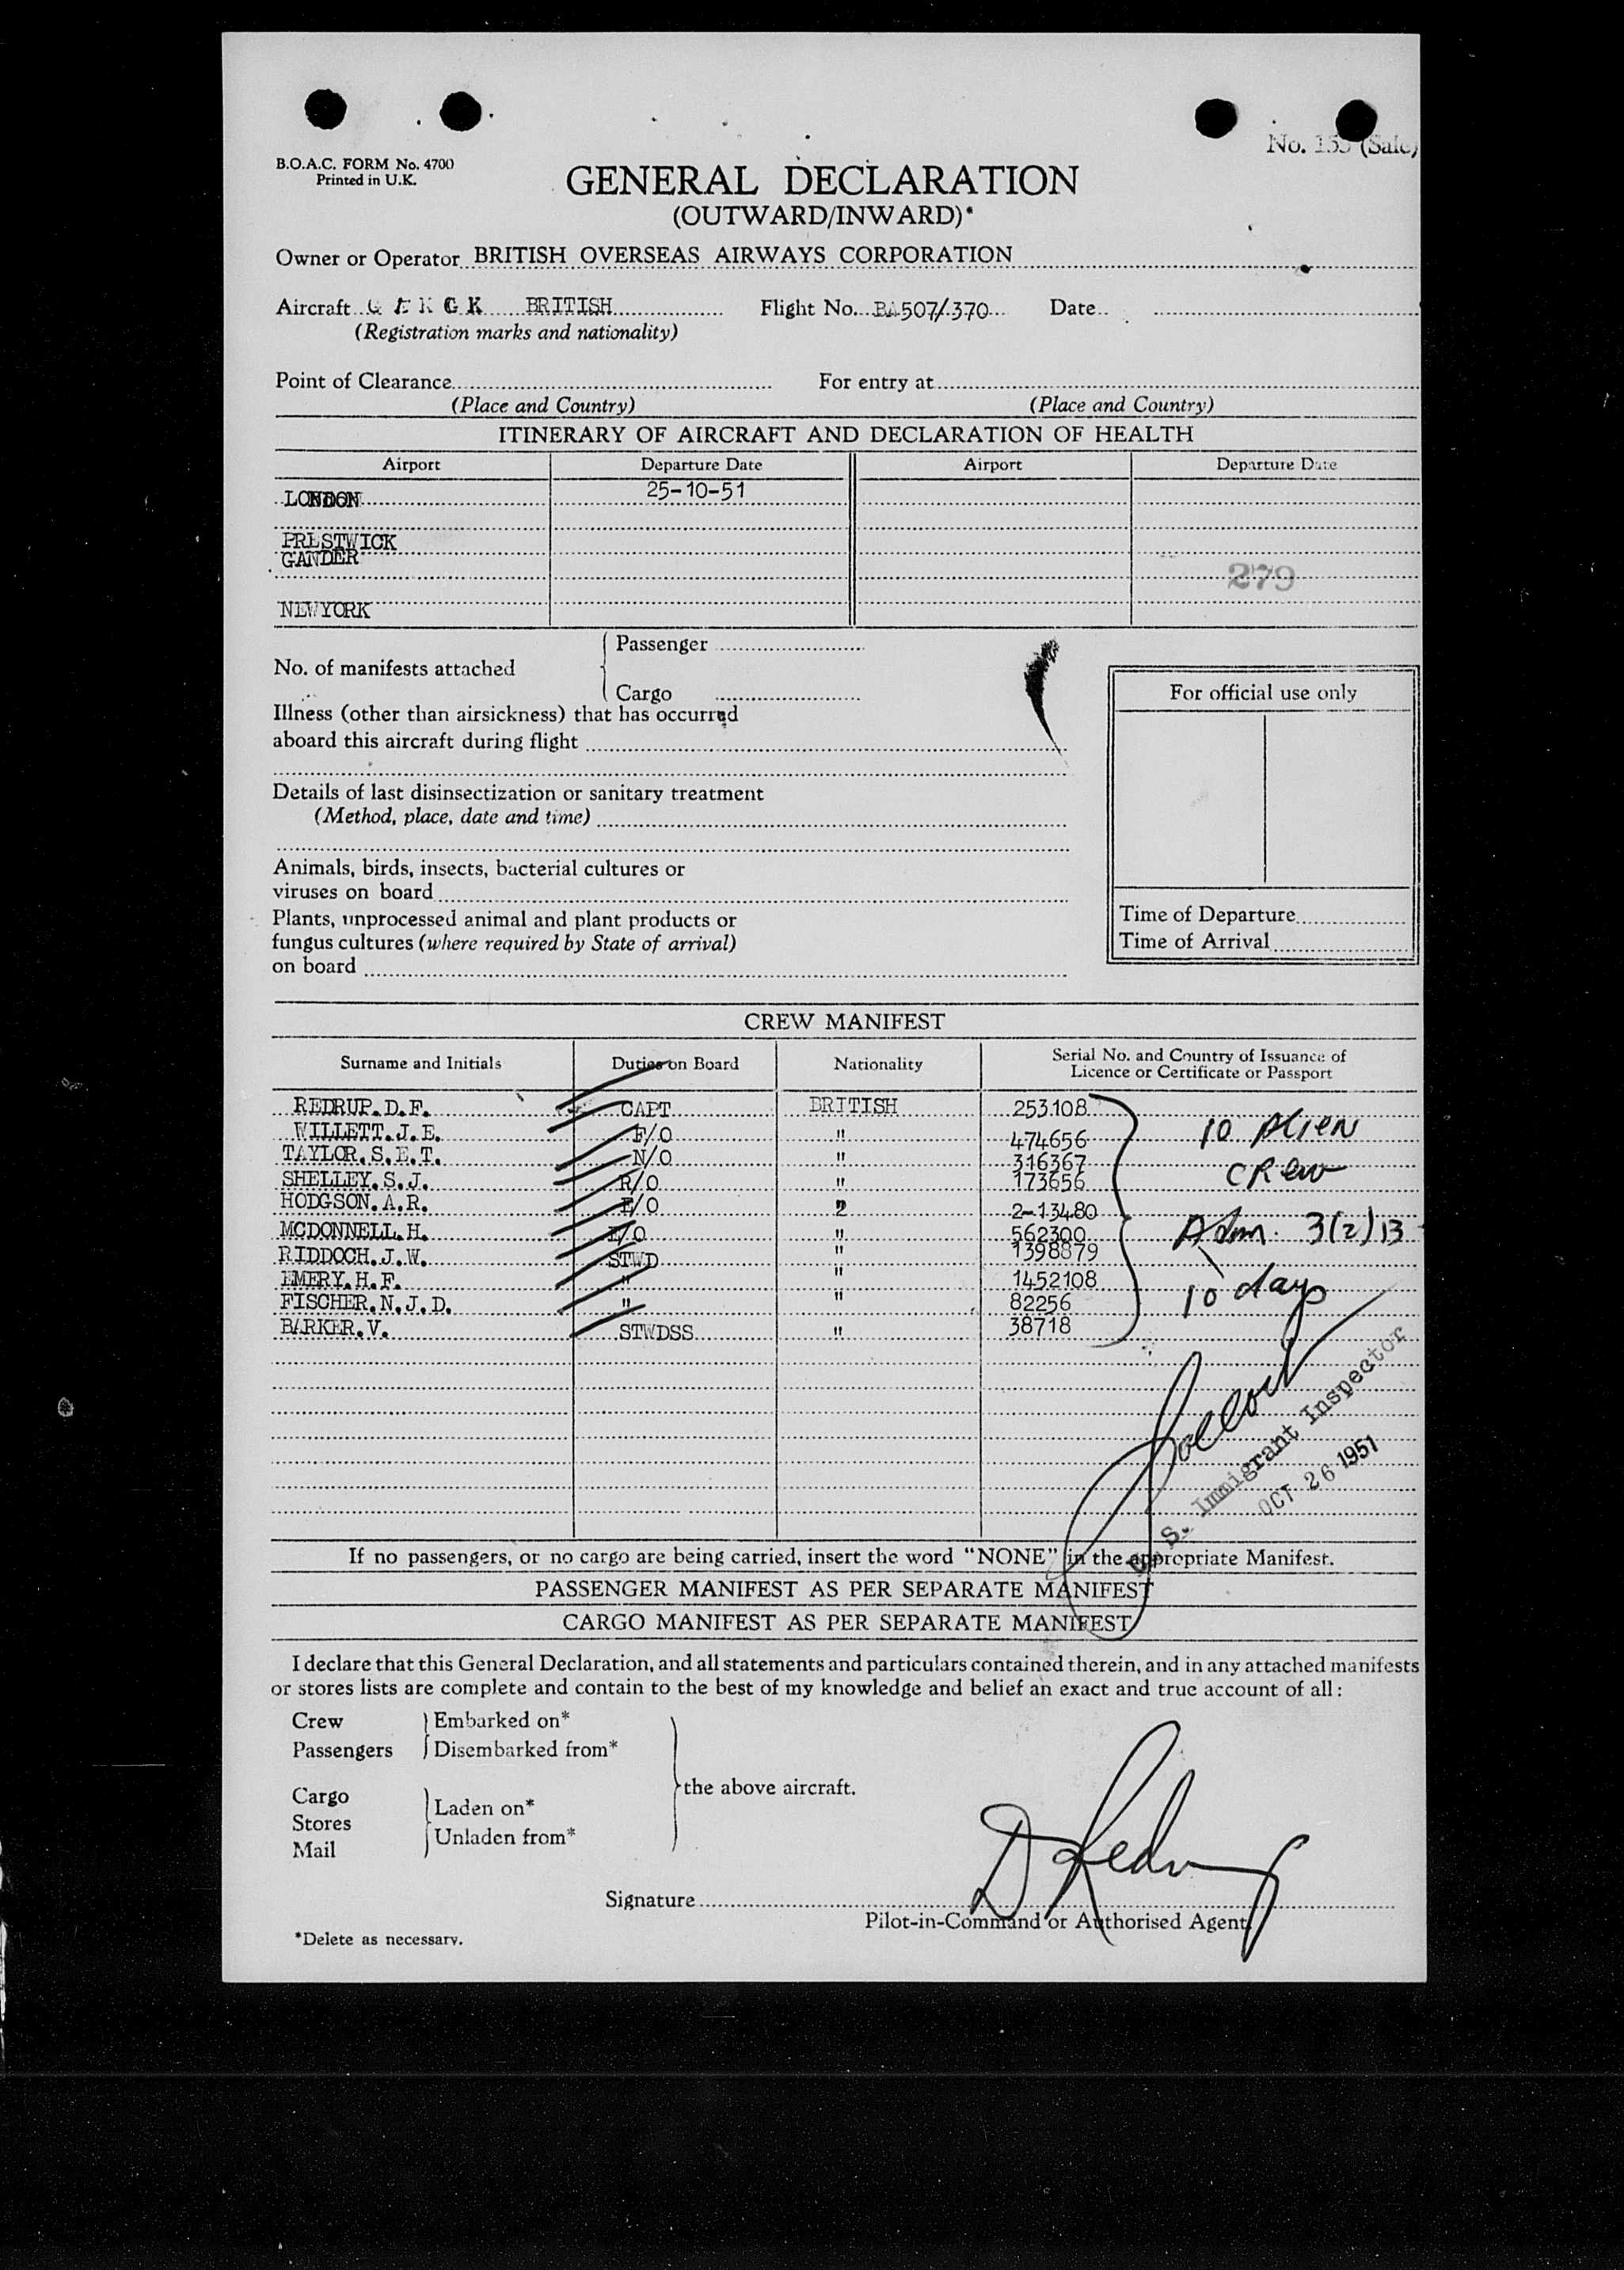 No. (Sale)
B.O.A.C. FORM No. 4700
Printed in U.K.
GENERAL DECLARATION
(OUTWARD/INWARD)*
Owner or Operator BRITISH OVERSEAS AIRWAYS CORPORATION
Aircraft G A K G K BRITISH Flight No. BA507/370 Date
(Registration marks and nationality)
Point of Clearance For entry at
(Place and Country) (Place and Country)
ITINERARY OF AIRCRAFT AND DECLARATION OF HEALTH
Airport Departure Date Airport Departure Date
LONDON 25-10-51
PRESTWICK
GANDER
279
NEWYORK
Passenger
No. of manifests attached
Cargo
For official use only
Illness (other than airsickness) that has occurred
aboard this aircraft during flight
Details of last disinsectization or sanitary treatment
(Method, place, date and time)
Animals, birds, insects, bacterial cultures or
viruses on board
Plants, unprocessed animal and plant products or
fungus cultures (where required by State of arrival)
on board
Time of Departure
Time of Arrival
CREW MANIFEST
Surname and Initials Duties on Board Nationality Serial No. and Country of Issuance of
Licence or Certificate or Passport
REDRUP. D. F. CAPT BRITISH 253108
WILLETT. J. E. F/O " 474656
TAYLOR. S. E. T. N/O " 316367
SHELLEY. S. J. R/O " 173656
HODGSON. A. R. E/O " 2-13480
MCDONNELL. H. E/O " 562300
RIDDOCH. J. W. STWD " 1398879
EMERY. H. F. " " 1452108
FISCHER. N. J. D. " " 82256
BARKER. V. STWDSS " 38718
10 Alien
Crew
Adm. 3(2)13
10 days
U. S. Immigrant Inspector
OCT 26 1951
If no passengers, or no cargo are being carried, insert the word "NONE" in the appropriate Manifest.
PASSENGER MANIFEST AS PER SEPARATE MANIFEST
CARGO MANIFEST AS PER SEPARATE MANIFEST
I declare that this General Declaration, and all statements and particulars contained therein, and in any attached manifests
or stores lists are complete and contain to the best of my knowledge and belief an exact and true account of all:
Crew Embarked on*
Passengers Disembarked from*
the above aircraft.
Cargo
Stores Laden on*
Mail Unladen from*
D Redrup
Signature
Pilot-in-Command or Authorised Agent.
*Delete as necessary.